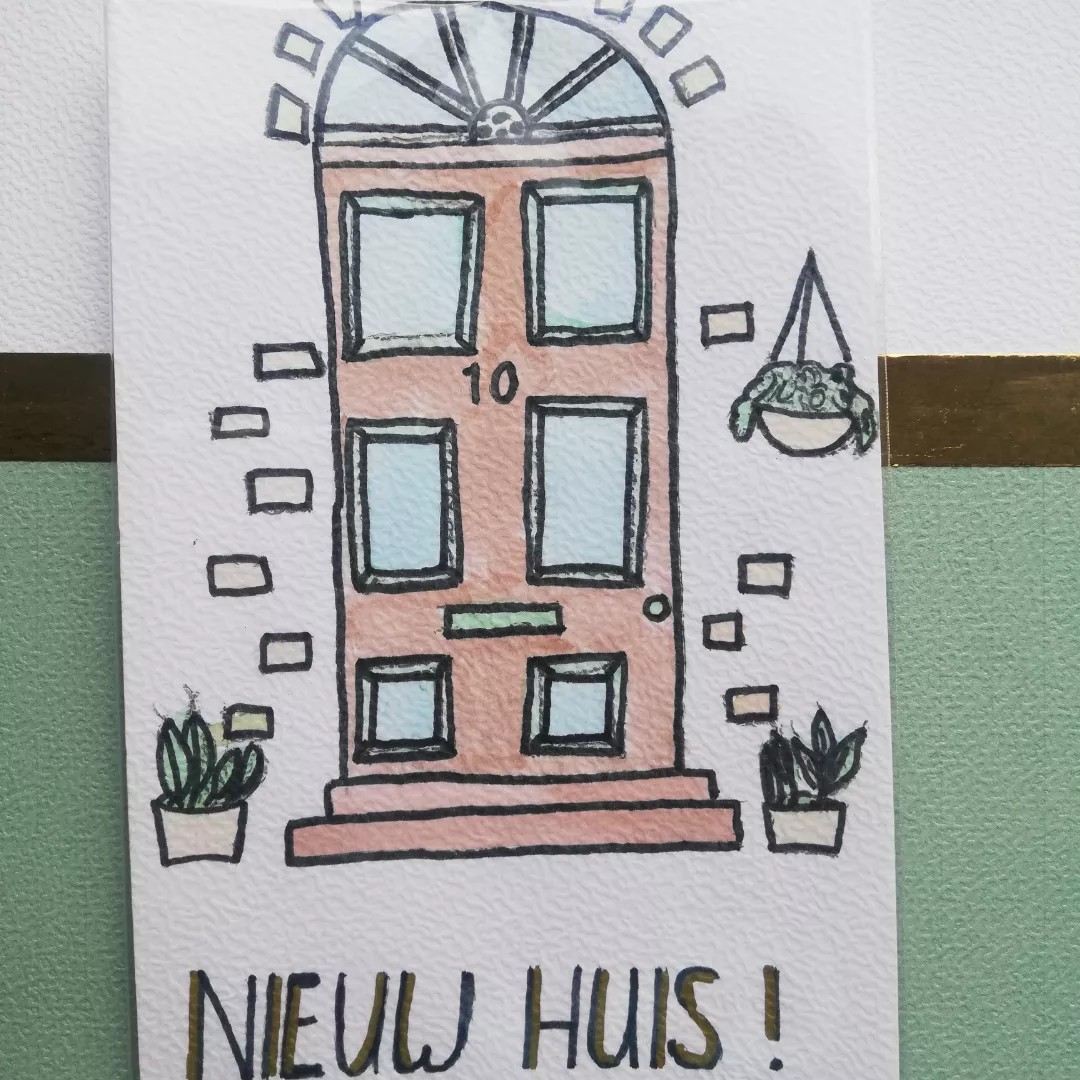 10
NIEUW HUIS!